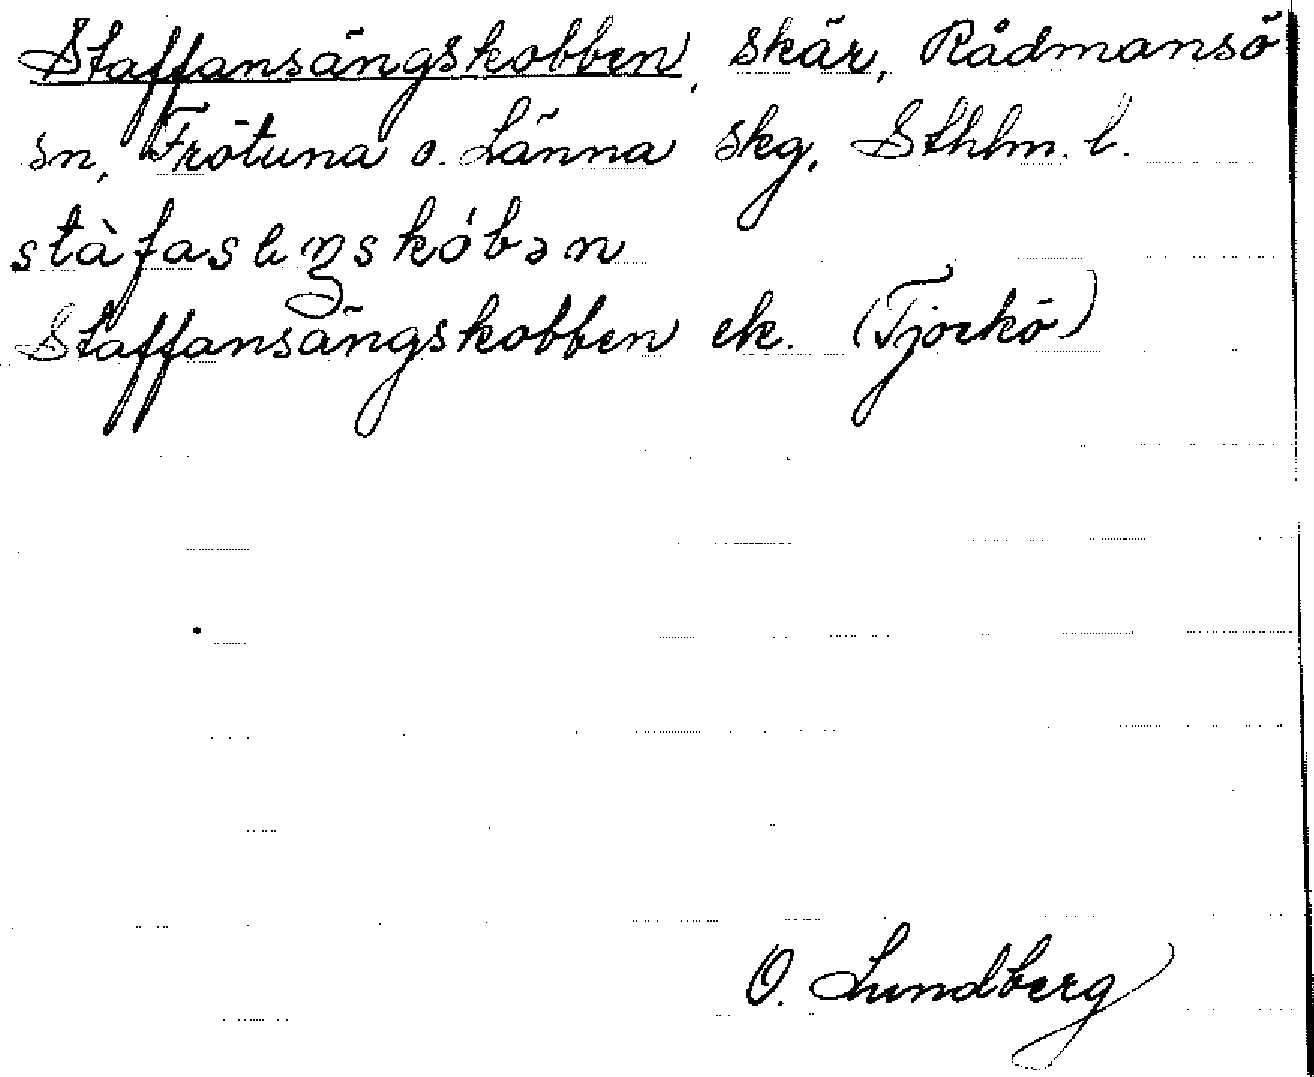 Staffansängskobben, skär, Rådmansö
sn, Frötuna o. Länna skg, Sthlm. l.
Staffansängskobben ek. (Tjockö)
O. Lundberg